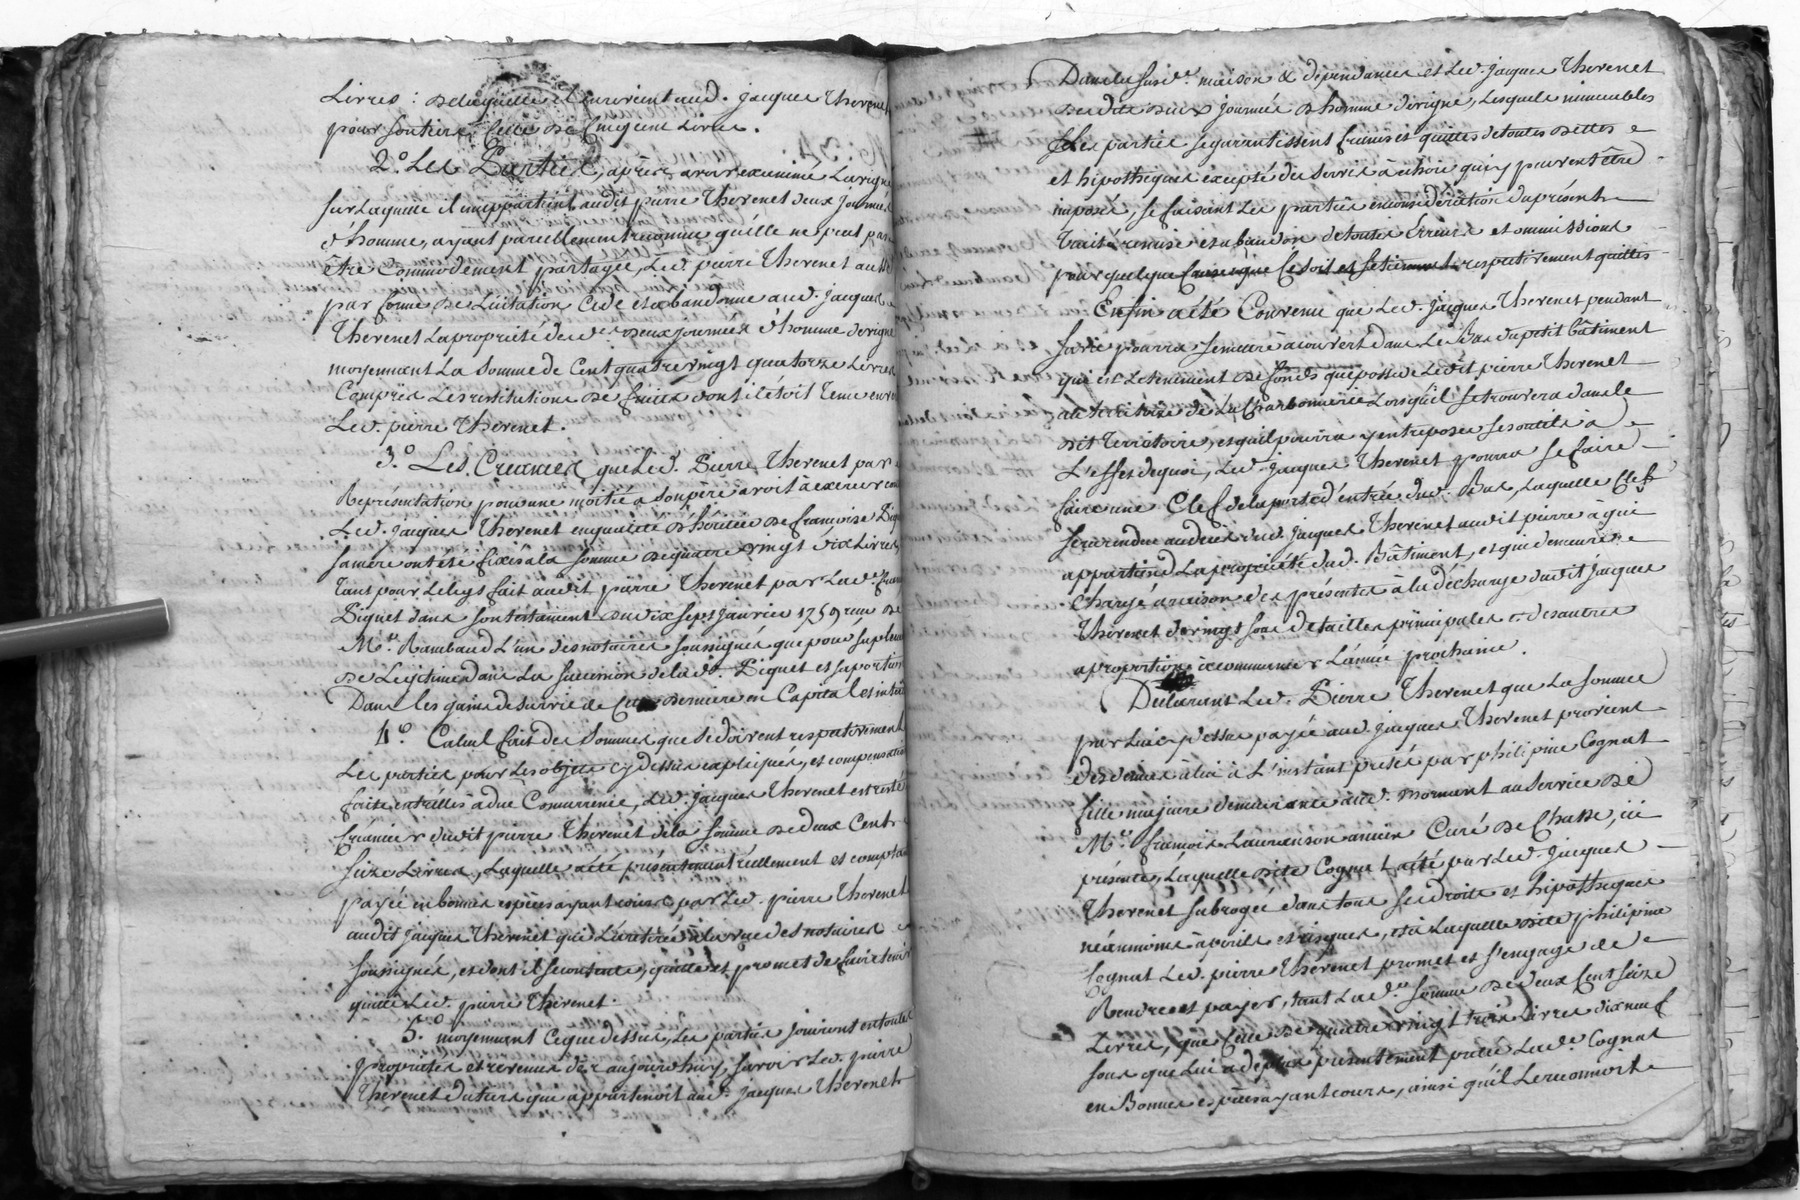 Livres : de laquelle il en revient aud. Jacques Thevenet
pour son tiers celle de cinq cent Livres.
2.° Les Parties, après avoir examiné La vigne
sur Laquelle il en appartient audit pierre Thevenet deux journées
d'homme, ayant pareillement reconnu qu'elle ne peut pas
être Commodement partagée, Led. pierre Thevenet aussi
par forme de Licitation Cede et abandonne aud. Jacques
Thevenet La propriété desd.es deux journées d'homme de vigne
moyennant La somme de Cent quatre vingt quatorze Livres
Compris Les restitutions de fruits dont il étoit tenu envers
Led. pierre Thevenet.
3.° Les Creances que Led. Pierre Thevenet par
Représentation pour une moitié a son père avoit à exercer contre
Led. Jacques Thevenet en qualité d'héritier de françoise Piquet
sa mère ont été fixées à la somme de quatre vingt dix Livres
tant pour Le legs fait audit pierre Thevenet par Lad.e
Piquet dans son testament du dix sept Janvier 1759 reçu de
M.e Rambaud L'un des notaires soussignés que pour suplement
de Legitime dans La succession de lad.e Piquet et sa portion
Dans les gains de survie de Cette derniere en Capital et interets
4.° Calcul fait des sommes que se doivent respectivement
Les parties pour Les objets cy dessus expliqués, et compensation
faite entr'elles à due Concurrence, Led. Jacques Thevenet est resté
Créancier dudit pierre Thevenet de la somme de deux Cent
seize Livres, Laquelle a été présentement réellement et comptant
payée en bonnes espèces ayant cours par Led. pierre Thevenet
audit Jacques Thevenet qui L'a retirée à la vue des notaires
soussignés, et dont il se contente, quitte et promet de faire tenir
quitte Led. pierre Thevenet.
5.° moyennant Ce que dessus, Les parties jouiront en toutes
proprietés et revenus dès aujourd'huy, savoir Led. pierre
Thevenet du tiers que appartenoit aud. Jacques Thevenet
Dans la susd.e maison & dependances et Led. Jacques Thevenet
desdites deux journées d'homme de vigne, Lesquels immeubles
Les parties se garantissent francs et quittes de toutes dettes
et hipotheques excepté du servis à échoir qui y peuvent être
imposés, se faisant Les parties en considération du présent
traité remise et abandon de toutes Erreurs et ommissions
pour quelque cause que Ce soit et se tiennent respectivement quittes
Enfin a été Convenu que Led. Jacques Thevenet pendant
sa vie pourra se mettre à couvert dans Le Bas du petit bâtiment
qui est Le tenement de fonds que possede Ledit pierre Thevenet
au territoire de La Charbonniere Lorsqu'il se trouvera dans le
dit Territoire, et qu'il pourra y entreposer ses outils à
L'effet de quoi, Led. Jacques Thevenet pourra se faire
faire une Clef de la porte d'entrée dud. Bas, Laquelle Clef
sera rendue au deces dud. Jacques Thevenet audit pierre à qui
appartient La propriété dud. Bâtiment, et qui demeure
Chargé à raison des présentes à la décharge dudit Jacques
Thevenet de vingt sous de tailles principales & des autres
a proportion à commencer L'année prochaine.
Déclarant Led. Pierre Thevenet que La somme
par Lui cy dessus payée aud. Jacques Thevenet provient
des deniers à lui à L'instant prêtés par philipine Cognat
fille majeure demeurante aud. mornant au service de
M.re françois Laurenson ancien Curé de Chasse, ici
présente, Laquelle dite Cognat a été par Led. Jacques
Thevenet subrogée dans tous ses droits et hipotheques
néanmoins à périls et risques, et à Laquelle dite philipine
Cognat Led. pierre Thevenet promet et s'engage de
Rendre et payer, tant Lad.e somme de deux Cent seize
Livres, que Celle de quatre vingt trois Livres dix neuf
sous que Lui a de plus présentement prêté Lad.e Cognat
en Bonnes espèces ayant cours, ainsi qu'il Le reconnoit